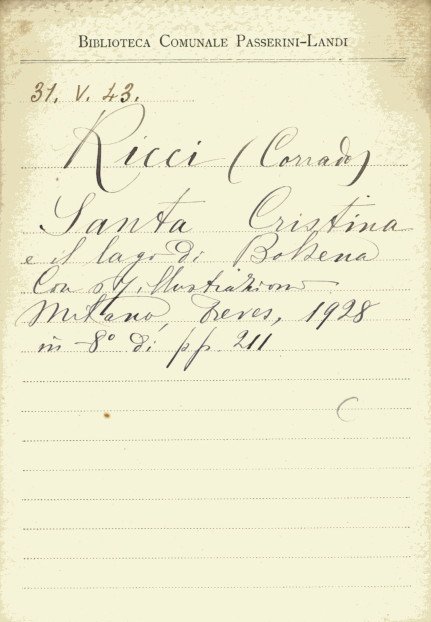 BIBLIOTECA COMUNALE PASSERINI-LANDI
31. V. 43.
Ricci (Corrado)
Santa Cristina
e il lago di Bolsena
Con 57 illustrazioni
Milano, Treves, 1928
in -8° di pp. 211